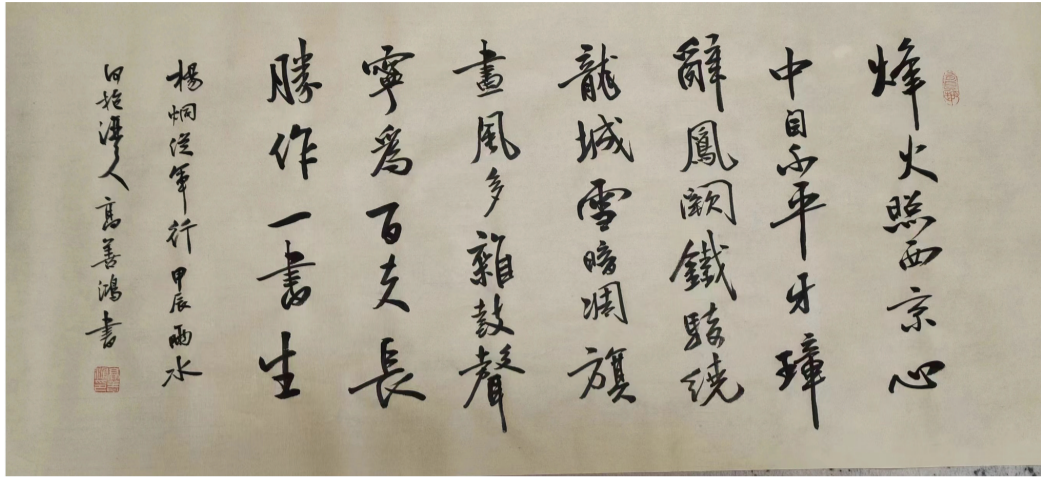 烽火照西京心
中自不平牙璋
辭鳳闕鐵騎繞
龍城雪暗凋旗
畫風多雜鼓聲
寧爲百夫長
勝作一書生
楊炯從軍行 甲辰雨水
人高善鴻書